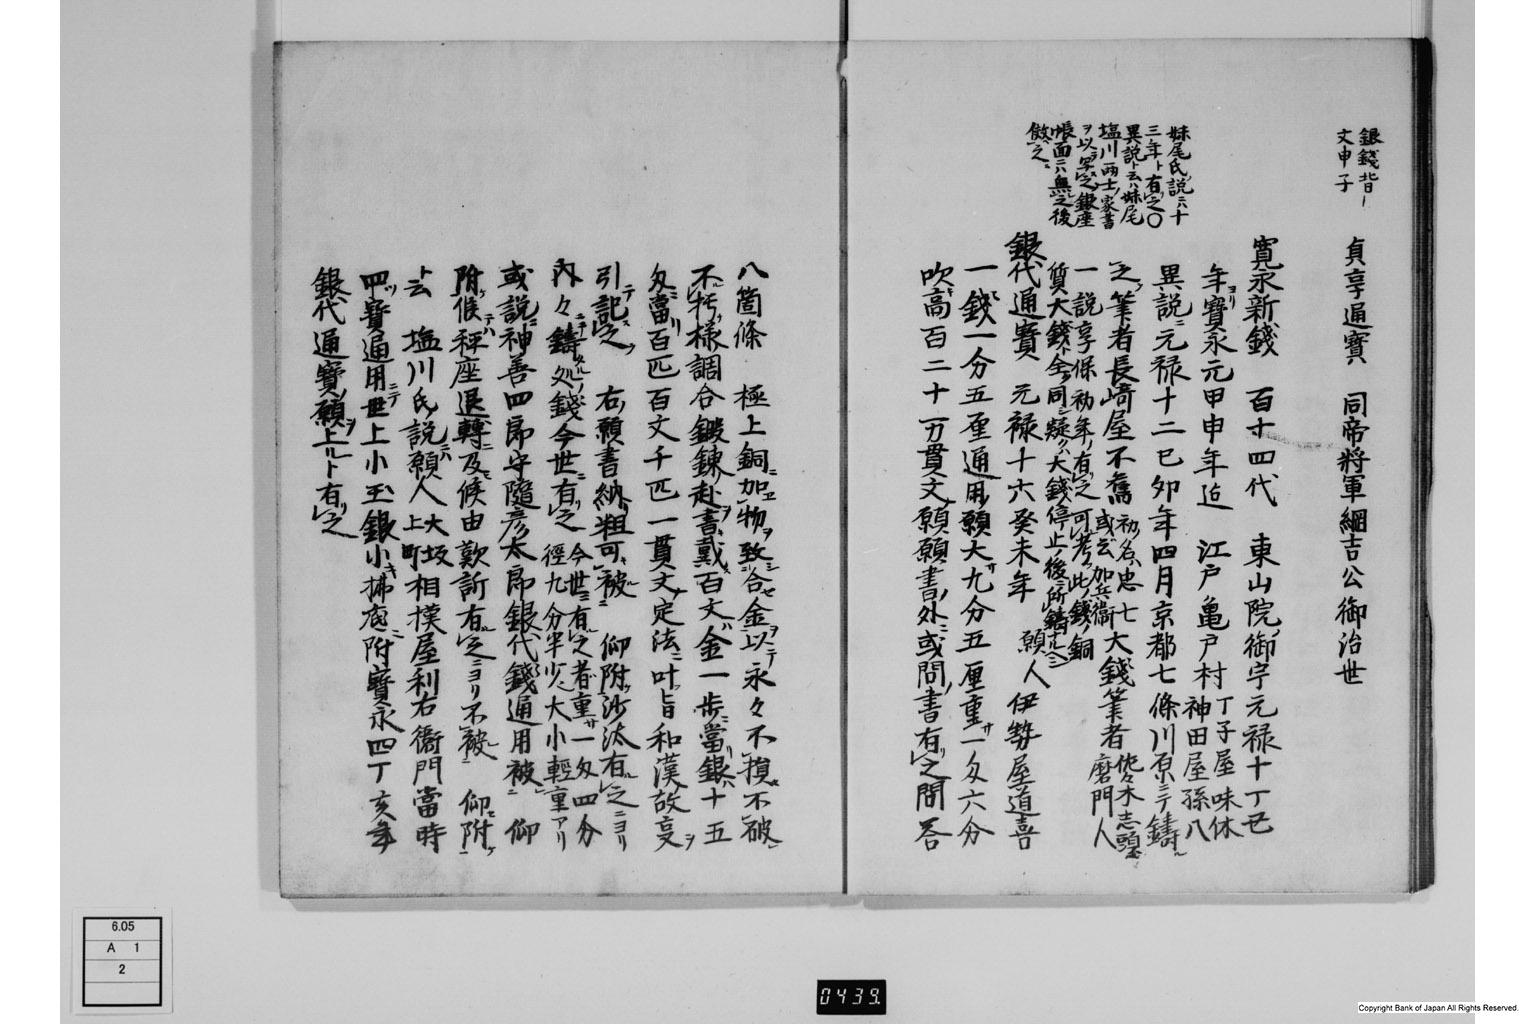 銀錢背ノ
文申子
貞享通寳　同帝將軍綱吉公御治世
寛永新錢　百十四代　東山院御宇元禄十丁丑
年ヨリ寳永元甲申年迠　江戸亀戸村　丁子屋味休
神田屋孫八
妹尾氏説ニ六十
三年ト有レ之〇
異説ト云ハ妹尾
塩川両士ノ家書
ヲ以写レ之銀座
帳面ニハ無レ之後
倣レ之
異説ニ元禄十二己夘年四月京都七條川原ニテ鑄ル
之筆者長﨑屋不舊　初名ハ忠七
或云加兵衛
大錢筆者　佐々木志頭
磨門人
一説享保初年ニ有レ之可レ考此錢ノ銅
質大錢ト全ク同シ疑ハ大錢停止ノ後ニ所鑄ナルヘシ
銀代通寳　元禄十六癸未年　願人伊勢屋道喜
一錢一分五厘通用願大サ九分五厘重サ一匁六分
吹高百二十万貫文願願書ノ外ニ或問書有リ之問答
八箇條　極上銅ニ加ヱ物ヲ致シ合セ金ヲ以テ永々不レ損不レ破
不レ朽様調合鍛錬赴書ヲ戴百文ハ金一歩ニ當リ銀十五
匁ニ當リ百匹百文千匹一貫文ノ定法ニ叶ッ旨和漢故文ヲ
引テ記レ之　右ノ願書納リ粗可レ被ニ　仰附ヶ沙汰有レ之ニヨリ
内々ニテ鑄タル処ノ錢今世ニ有リ之　今世ニ有レ之者ハ重サ一匁四分
徑九分半少シ大小輕重アリ
或説ニ神善四郎守隨彦太郎銀代錢通用被ニ　仰
附ヶ候テハ秤座退轉ニ及ヒ候由歎訴有レ之ニヨリ不レ被ニ　仰附ケ
ト云　塩川氏ノ説ニハ願人大坂上町相模屋利右衛門當時
四ツ寳通用ニテ世上小玉銀小拂底ニ附寳永四丁亥年
銀代通寳ヲ願上ルト有リ之
6.05
A 1
2
0439.
Copyright Bank of Japan All Rights Reserved.